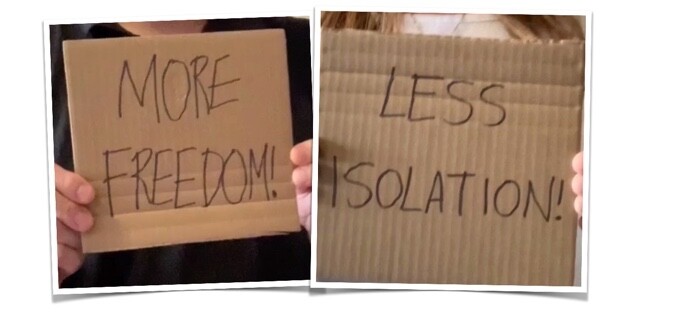 MORE
FREEDOM!
LESS
ISOLATION!